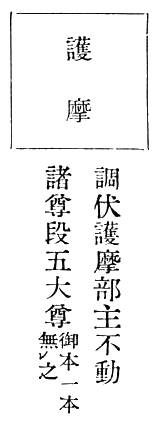 護摩
調伏護摩部主不動
諸尊段五大尊御本一本
無レ之